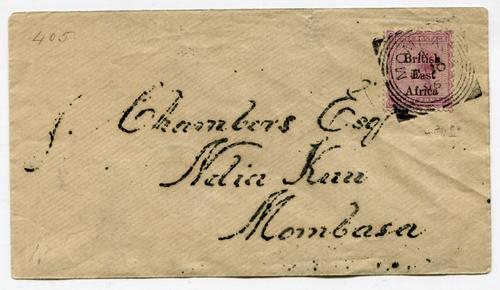 405
British
East
Africa
J. Chambers Esq
Ndia Kuu
Mombasa